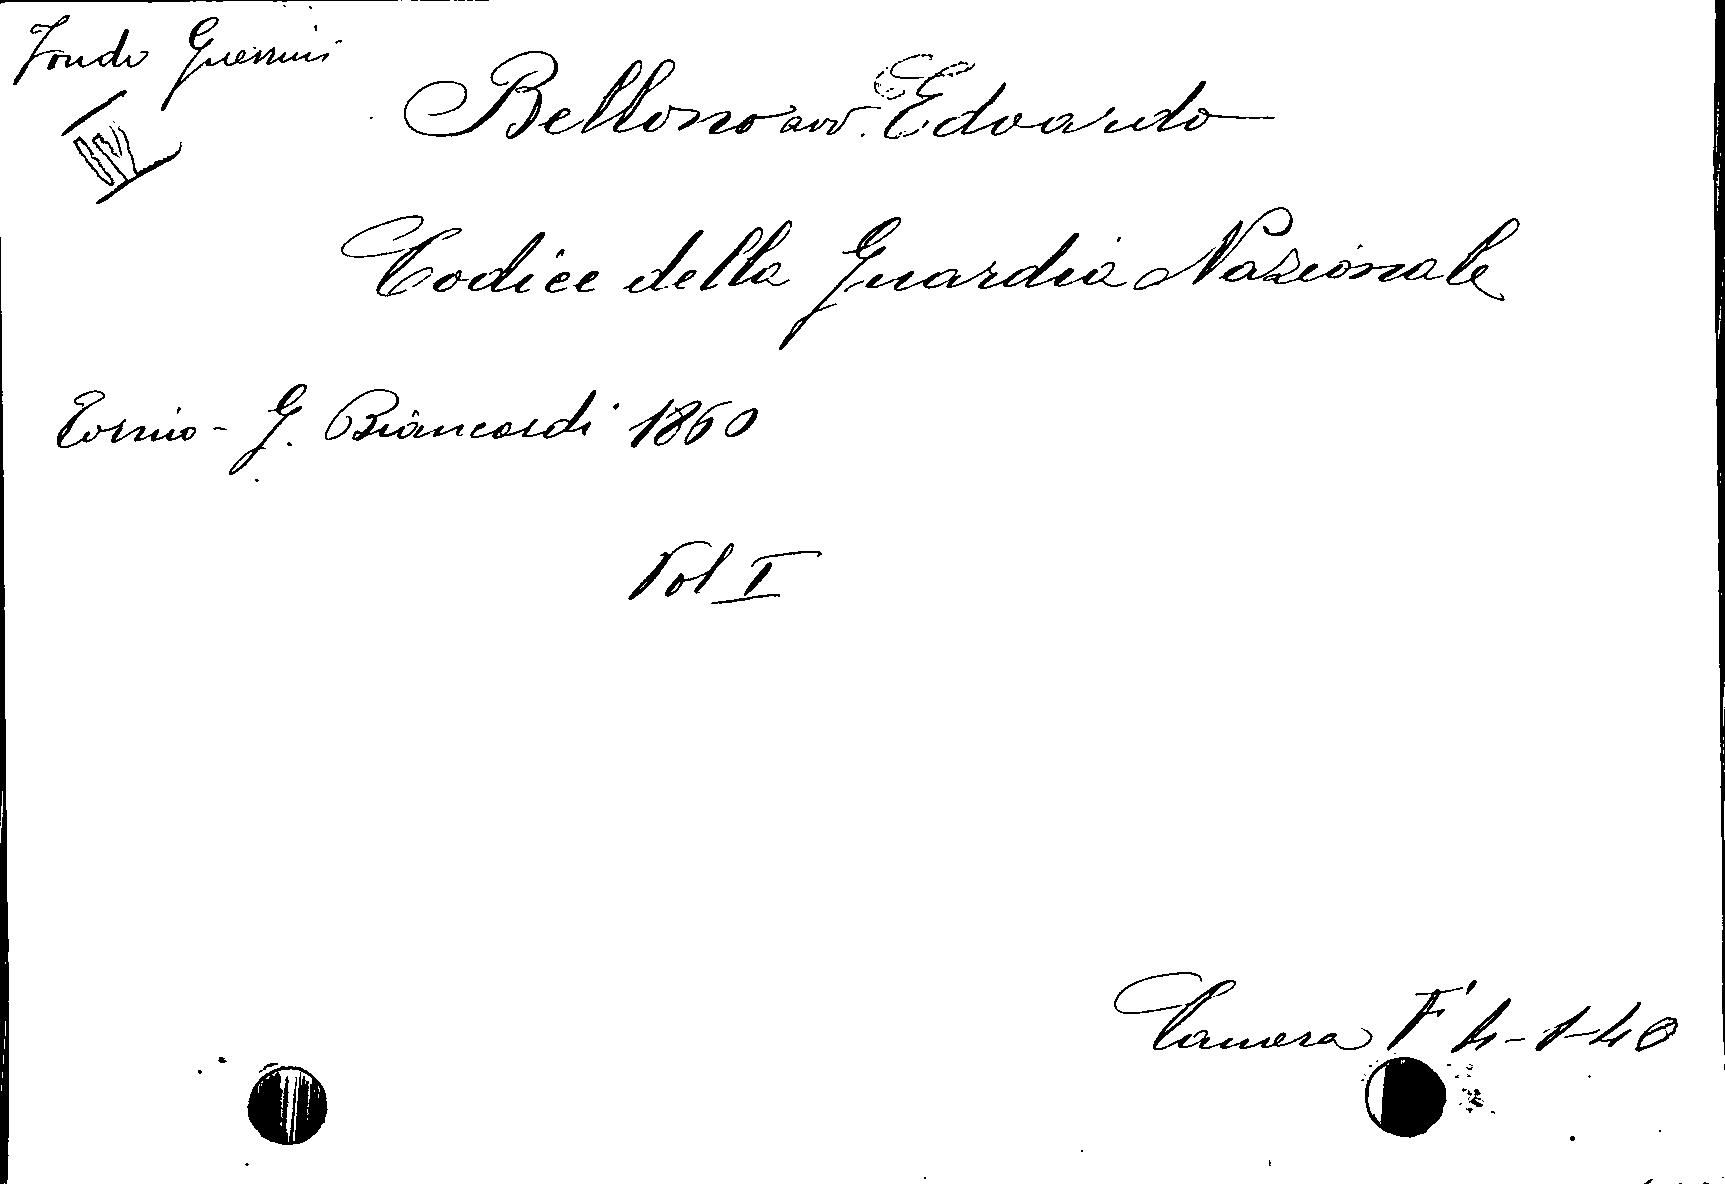 Fondo Guerrini
IV
Bellono avv. Edoardo
Codice della Guardia Nazionale
Torino - G. Biancardi 1860
Vol I
Camera F' 4-1-40